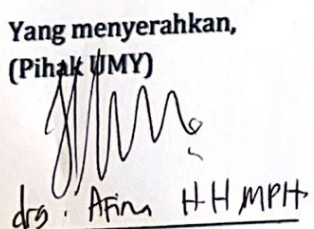 Yang menyerahkan,
(Pihak UMY)
drg. Afina H H MPH